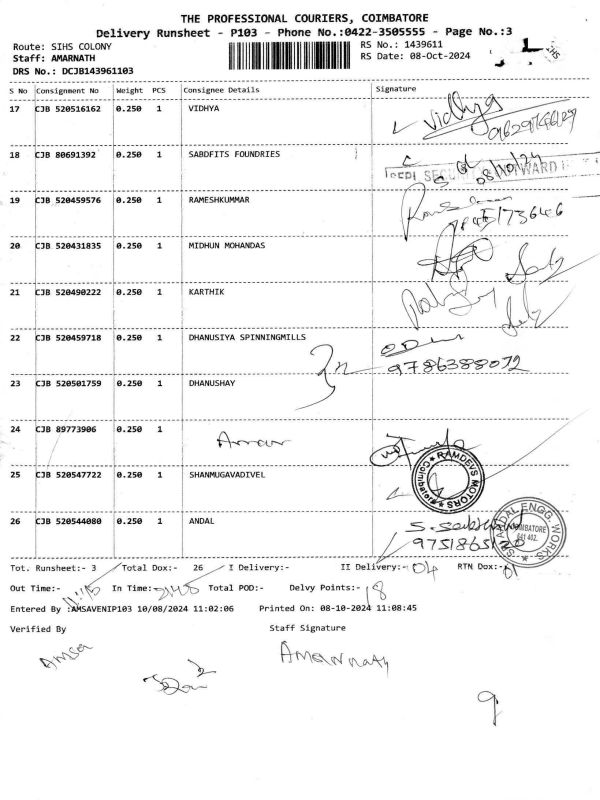 THE PROFESSIONAL COURIERS, COIMBATORE
Delivery Runsheet - P103 - Phone No.:0422-3505555 - Page No.:3
Route: SIHS COLONY RS No.: 1439611
Staff: AMARNATH RS Date: 08-Oct-2024
DRS No.: DCJB143961103
S No Consignment No Weight PCS Consignee Details Signature
17 CJB 520516162 0.250 1 VIDHYA Vidhya
18 CJB 80691392 0.250 1 SABDFITS FOUNDRIES 08/10/24
19 CJB 520459576 0.250 1 RAMESHKUMMAR
20 CJB 520431835 0.250 1 MIDHUN MOHANDAS
21 CJB 520490222 0.250 1 KARTHIK
22 CJB 520459718 0.250 1 DHANUSIYA SPINNINGMILLS
9786388072
23 CJB 520501759 0.250 1 DHANUSHAY
24 CJB 89773906 0.250 1
RAMDEVS MOTORS Coimbatore
25 CJB 520547722 0.250 1 SHANMUGAVADIVEL
26 CJB 520544080 0.250 1 ANDAL
ANDAL ENGG. WORKS COIMBATORE 641 402.
Tot. Runsheet:- 3 Total Dox:- 26 I Delivery:- II Delivery:- 04 RTN Dox:- 01
Out Time:- 11:15 In Time:- Total POD:- Delvy Points:- 18
Entered By :AMSAVENIP103 10/08/2024 11:02:06 Printed On: 08-10-2024 11:08:45
Verified By Staff Signature
Amsa Amarnath